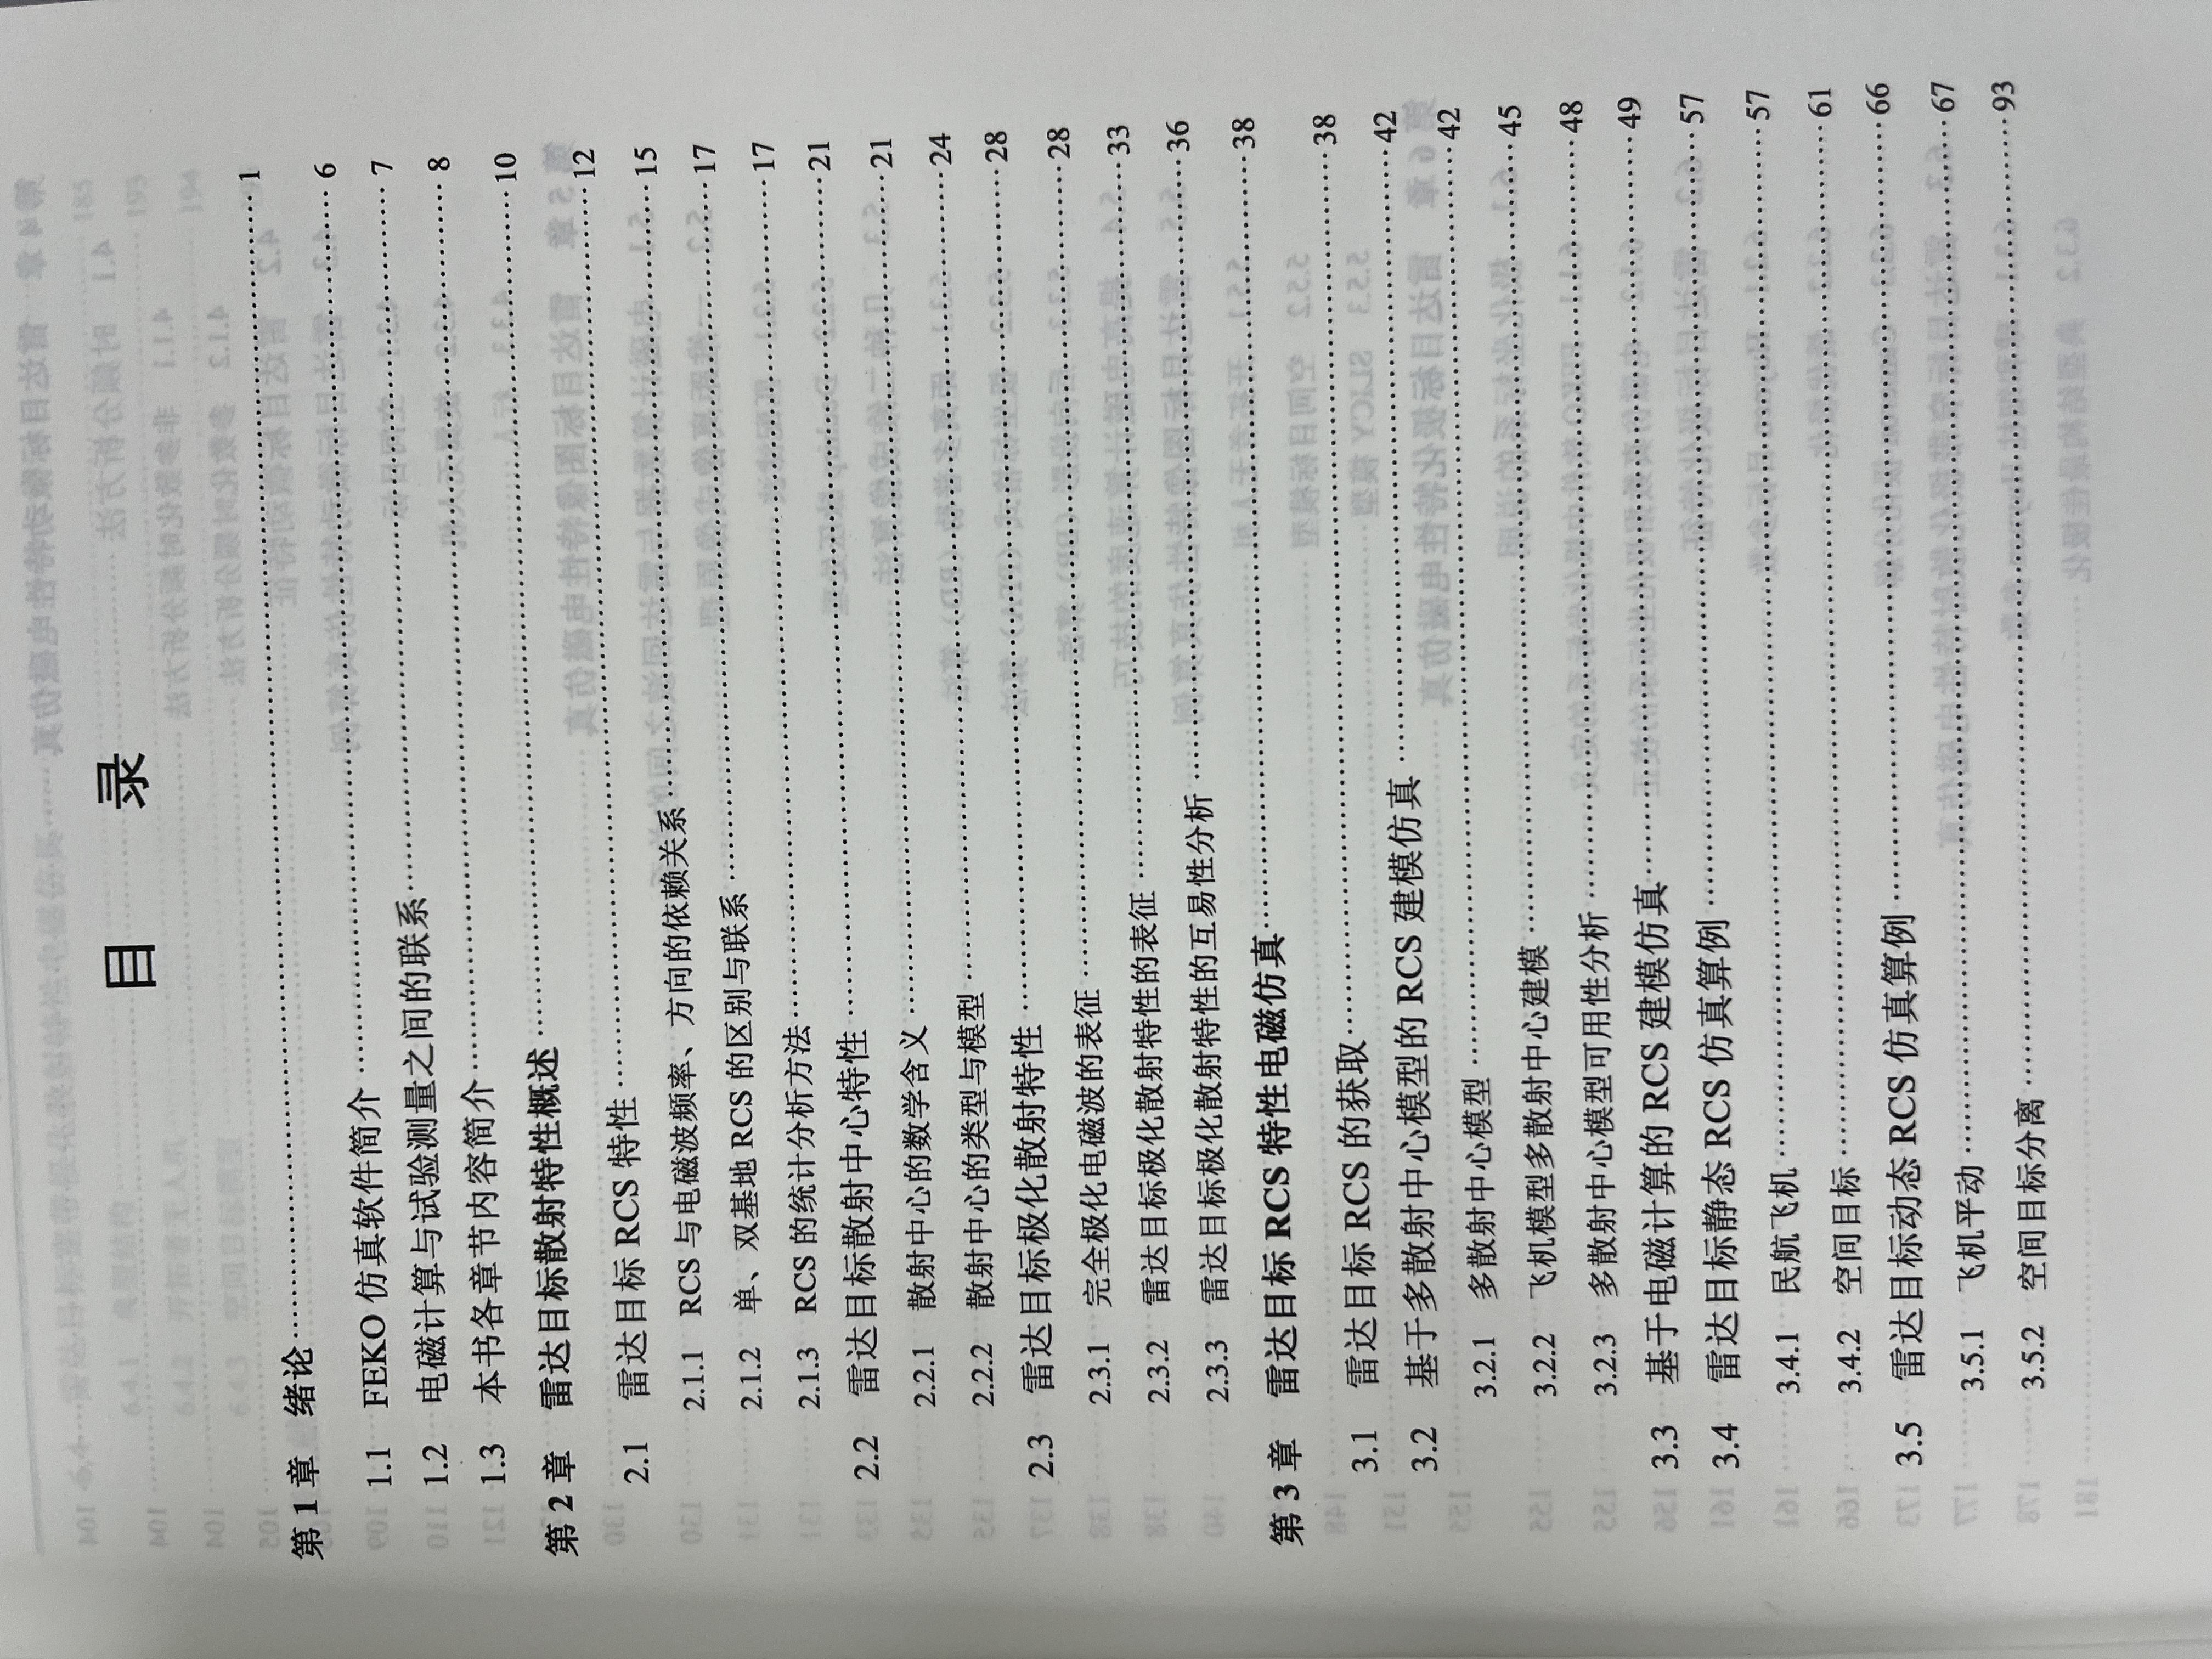 目 录
第 1 章 绪论……1
1.1 FEKO 仿真软件简介……6
1.2 电磁计算与试验测量之间的联系……7
1.3 本书各章节内容简介……8
第 2 章 雷达目标散射特性概述……10
2.1 雷达目标 RCS 特性……12
2.1.1 RCS 与电磁波频率、方向的依赖关系……15
2.1.2 单、双基地 RCS 的区别与联系……17
2.1.3 RCS 的统计分析方法……17
2.2 雷达目标散射中心特性……21
2.2.1 散射中心的数学含义……21
2.2.2 散射中心的类型与模型……24
2.3 雷达目标极化散射特性……28
2.3.1 完全极化电磁波的表征……28
2.3.2 雷达目标极化散射特性的表征……33
2.3.3 雷达目标极化散射特性的互易性分析……36
第 3 章 雷达目标 RCS 特性电磁仿真……38
3.1 雷达目标 RCS 的获取……38
3.2 基于多散射中心模型的 RCS 建模仿真……42
3.2.1 多散射中心模型……42
3.2.2 飞机模型多散射中心建模……45
3.2.3 多散射中心模型可用性分析……48
3.3 基于电磁计算的 RCS 建模仿真……49
3.4 雷达目标静态 RCS 仿真算例……57
3.4.1 民航飞机……57
3.4.2 空间目标……61
3.5 雷达目标动态 RCS 仿真算例……66
3.5.1 飞机平动……67
3.5.2 空间目标分离……93